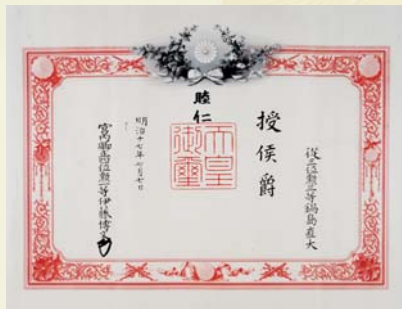 従三位勲三等鍋島直大
授侯爵
睦仁
天皇御璽
明治十七年七月七日
宮内卿正四位勲一等伊藤博文